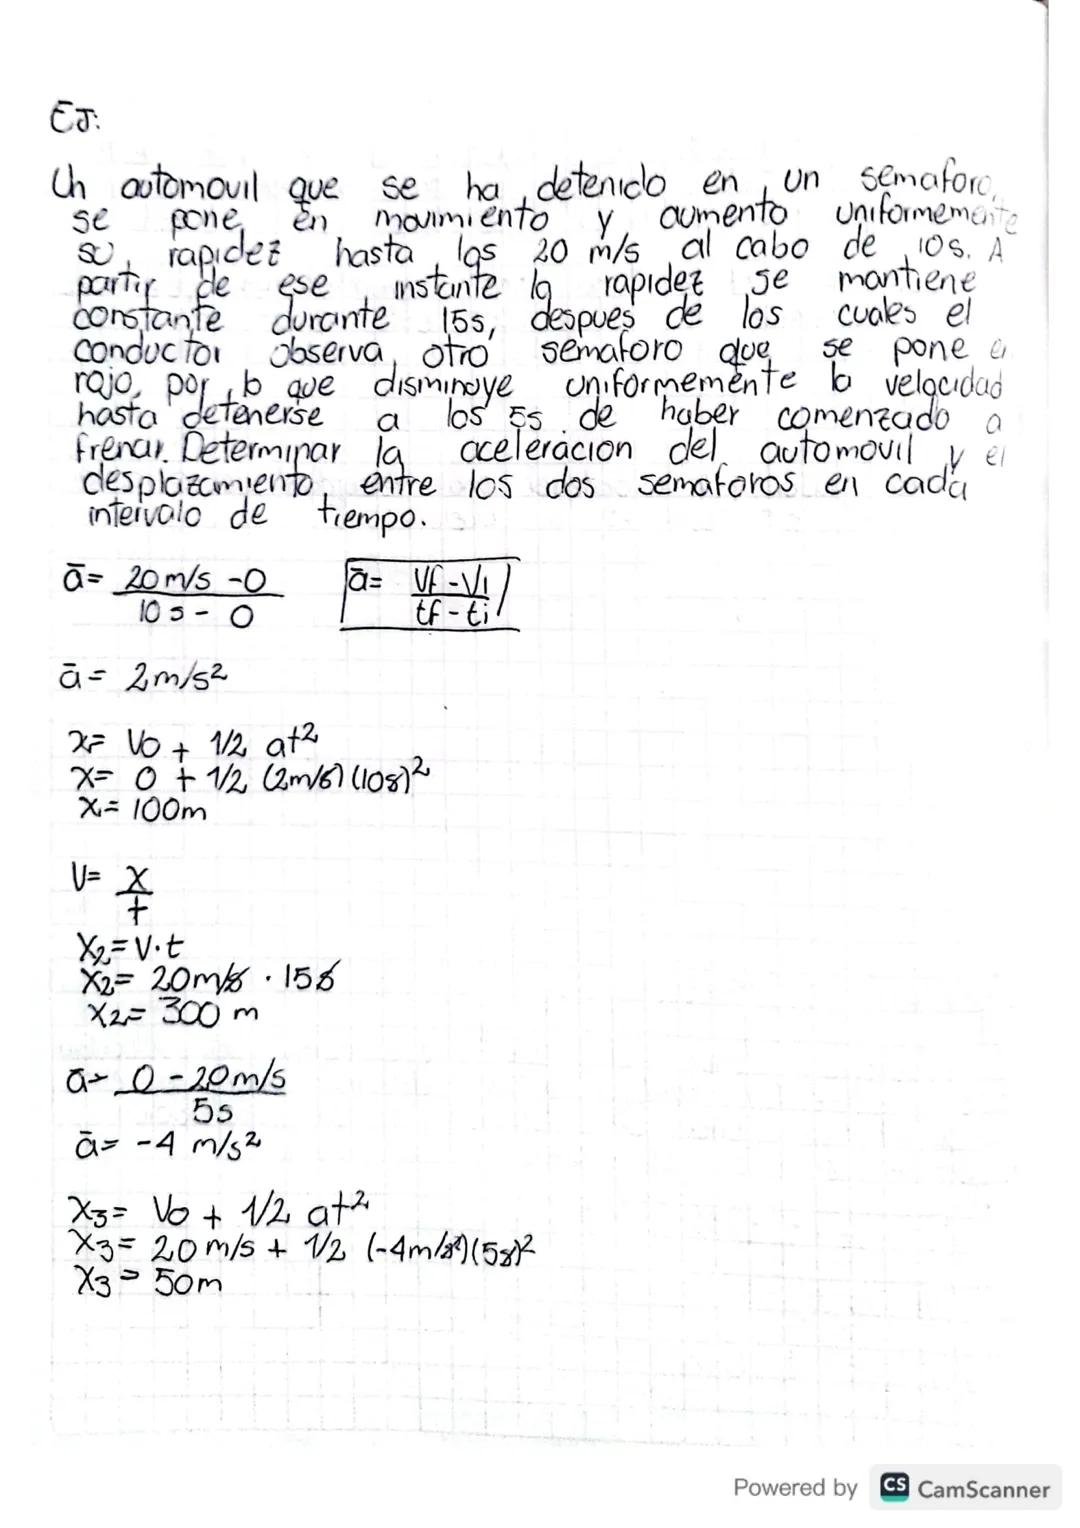 EJ:
Un automovil que se ha detenido en un semaforo,
se pone en movimiento y aumento uniformemente
su rapidez hasta los 20 m/s al cabo de 10s. A
partir de ese instante la rapidez se mantiene
constante durante 15s, despues de los cuales el
conductor observa otro semaforo que se pone a
rojo, por lo que disminuye uniformemente la velocidad
hasta detenerse a los 5s de haber comenzado a
frenar. Determinar la aceleración del automovil y el
desplazamiento entre los dos semaforos en cada
intervalo de tiempo.
ā= 20m/s -0 / 10s - 0    ā= Vf-Vi / tf-ti
ā= 2m/s²
x= Vo + 1/2 at²
x= 0 + 1/2 (2m/s²)(10s)²
x= 100m
V= x / t
X₂= V·t
X₂= 20m/s · 15s
X₂= 300 m
ā= 0 -20m/s / 5s
ā= -4 m/s²
X₃= Vo + 1/2 at²
X₃= 20m/s + 1/2 (-4m/s²)(5s)²
X₃= 50m
Powered by CS CamScanner